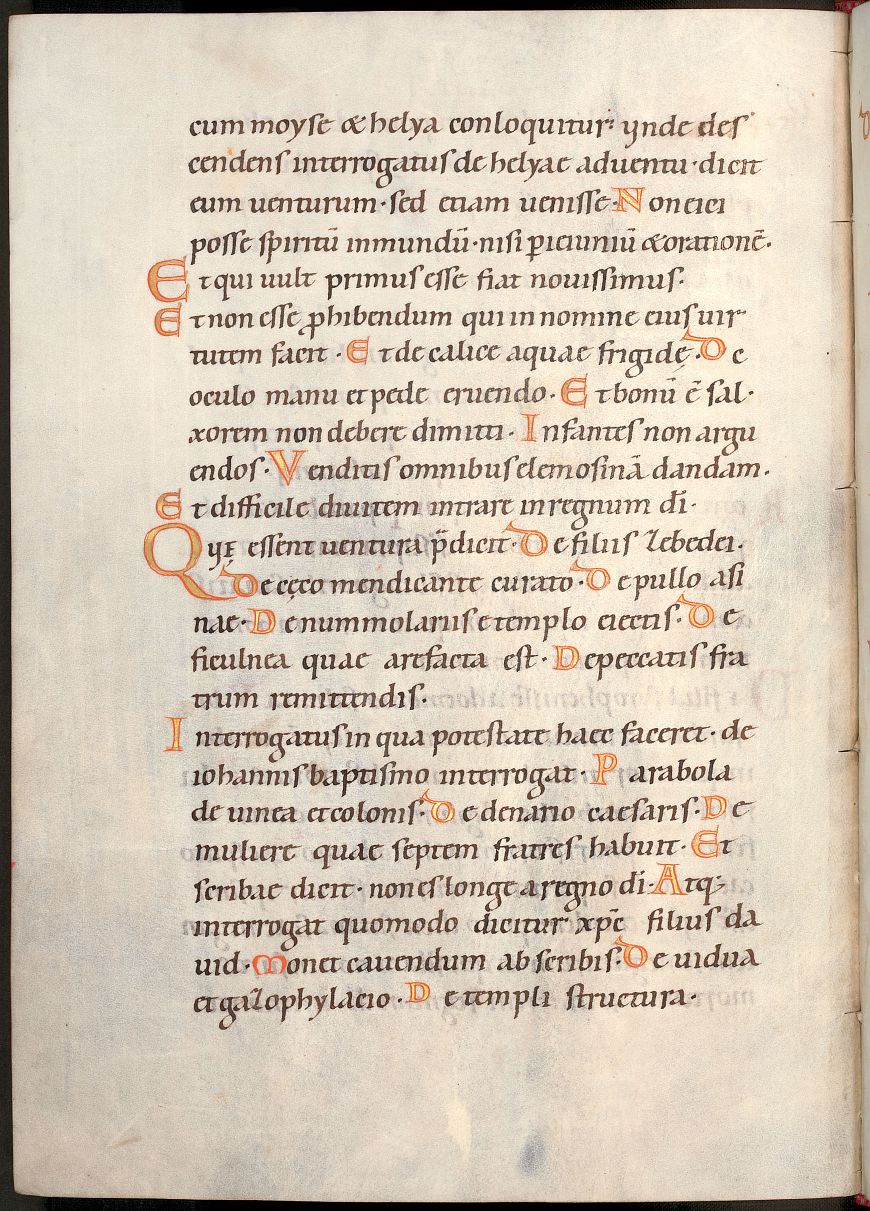 cum moyse & helya conloquitur: ynde des
cendens interrogatus de helyae aduentu · dicit
eum uenturum · sed etiam uenisse · Non eici
posse spiritū inmundū · nisi p̱ ieiuniū & orationē ·
Et qui uult primus esse fiat nouissimus ·
Et non esse ꝓhibendum qui in nomine eius uir
tutem facit · Et de calice aquae frigidę · De
oculo manu et pede eruendo · Et bonū ē sal ·
xorem non debere dimitti · Infantes non argu
endos · Venditis omnibus elemosinā dandam ·
Et difficile diuitem intrare in regnum dī ·
Quę essent uentura p̄dicit · De filiis zebedei ·
De cęco mendicante curato · De pullo asi
nae · De nummolariis e templo eiectis · De
ficulnea quae arefacta est · De peccatis fra
trum remittendis ·
Interrogatus in qua potestate haec faceret · de
iohannis baptismo interrogat · Parabola
de uinea et colonis · De denario caesaris · De
muliere quae septem fratres habuit · Et
scribae dicit · non es longe a regno dī · Atq;
interrogat quomodo dicitur xp̄c filius da
uid · Monet cauendum ab scribis · De uidua
et gazophylacio · De templi structura ·